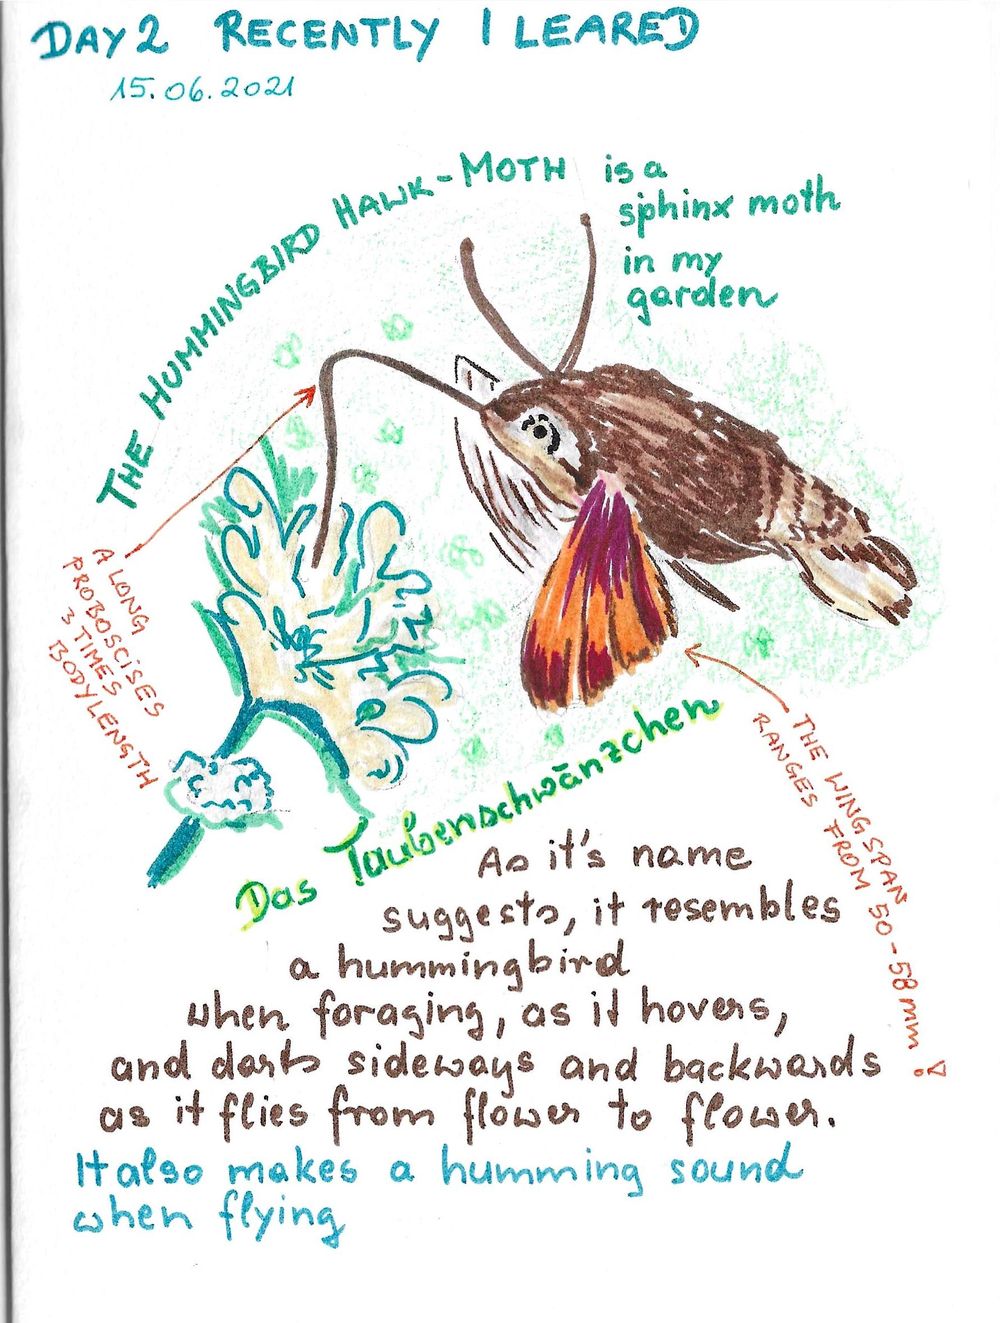 DAY 2 RECENTLY I LEARED
15.06.2021
THE HUMMINGBIRD HAWK-MOTH
is a
sphinx moth
in my
garden
A LONG
PROBOSCISES
3 TIMES
BODY LENGTH
THE WINGSPAN
RANGES FROM 50-58mm!
Das Taubenschwänzchen
As it's name
suggests, it resembles
a hummingbird
when foraging, as it hovers,
and darts sideways and backwards
as it flies from flower to flower.
It also makes a humming sound
when flying